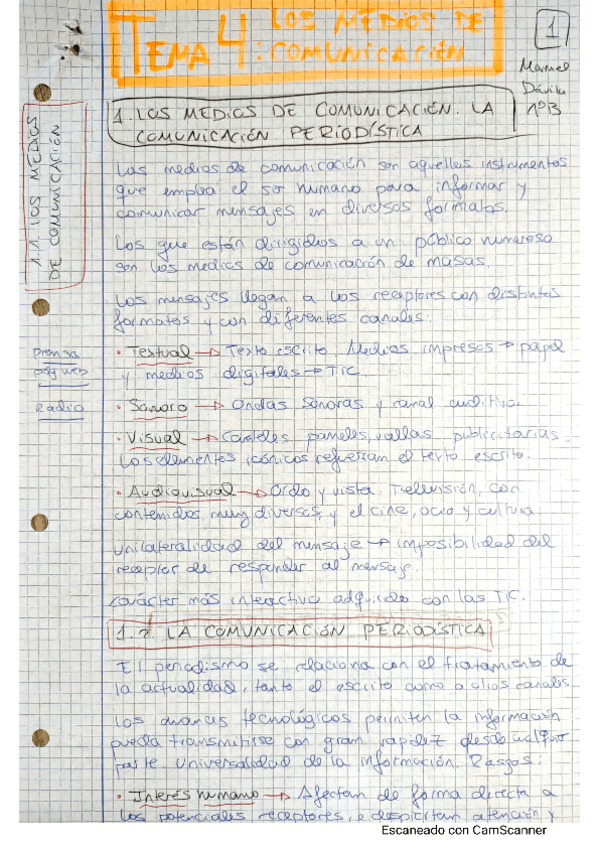 TEMA 4: LOS MEDIOS DE
COMUNICACIÓN
1
Manuel
Dávila
1ºB
1. LOS MEDIOS DE COMUNICACIÓN. LA
COMUNICACIÓN PERIODÍSTICA
1.1. LOS MEDIOS
DE COMUNICACIÓN
Los medios de comunicación son aquellos instrumentos
que emplea el ser humano para informar y
comunicar mensajes en diversos formatos.
Los que están dirigidos a un público numeroso
son los medios de comunicación de masas.
Los mensajes llegan a los receptores con distintos
formatos y con diferentes canales:
prensa
pág web
· Textual → Texto escrito. Medios impresos → papel
y medios digitales → TIC.
radio
· Sonoro → Ondas sonoras y canal auditivo.
· Visual → Carteles, paneles, vallas publicitarias.
Los elementos icónicos refuerzan el texto escrito.
· Audiovisual → Oído y vista. Televisión, con
contenidos muy diversos, y el cine, ocio y cultura.
Unilateralidad del mensaje → imposibilidad del
receptor de responder al mensaje.
Carácter más interactivo adquirido con las TIC.
1.2 LA COMUNICACIÓN PERIODÍSTICA
El periodismo se relaciona con el tratamiento de
la actualidad, tanto el escrito como a otros canales.
Los avances tecnológicos permiten la información
pueda transmitirse con gran rapidez desde cualquier
parte. Universalidad de la información. Rasgos:
· Interés humano → Afectan de forma directa a
los potenciales receptores, e despiertan atención y
Escaneado con CamScanner